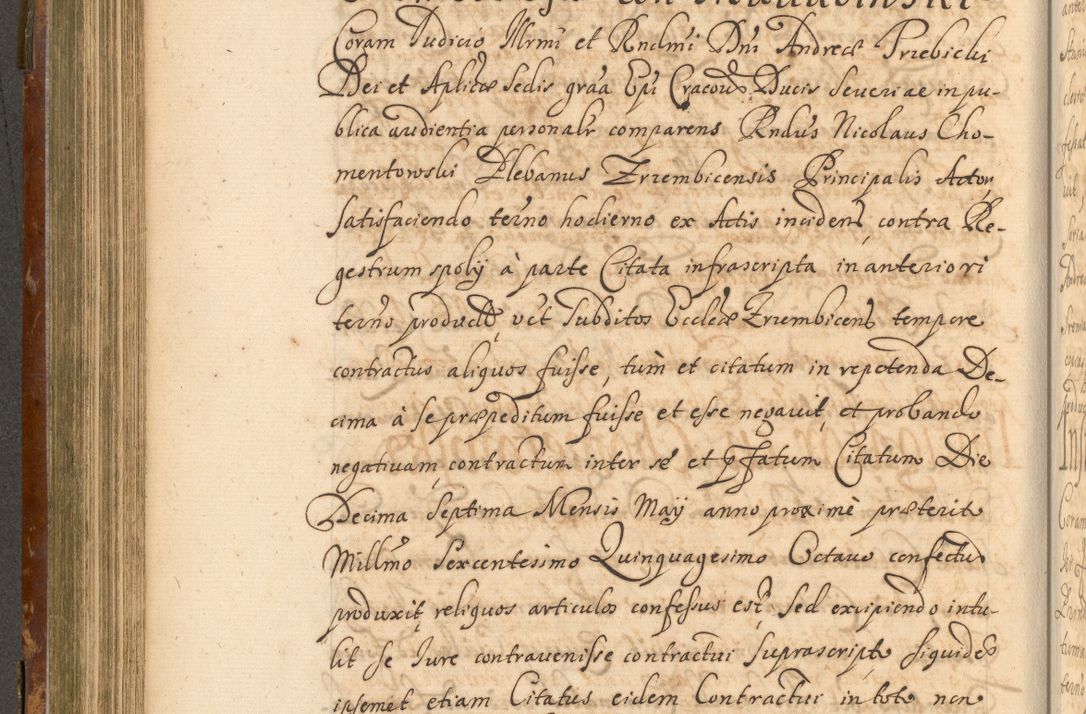 Coram Judicio Illrmi et Rndmi Dni Andreæ Trzebicki
Dei et Aplicæ Sedis graa Epi Cracov Ducis Severiae in pu-
blica audientia personalr comparens Rndus Nicolaus Cho-
mentowski Plebanus Zrzembicensis Principalis Actor
satisfaciendo terno hodierno ex Actis inciden contra Re-
gestrum spolij à parte Citata infrascripta in anteriori
terno product, vct Subditos Eccleæ Zrzembicens tempore
contractus aliquos fuisse, tum et citatum in repetenda De-
cima à se præpeditum fuisse et esse negavit, et probando
negativam contractum inter se et pfatum Citatum Die
Decima Septima Mensis Maij anno proxime præterito
Millmo Sexcentesimo Quinquagesimo Octavo confectu
produxit reliquos articulos confessus est, Sed excipiendo intu-
lit se Jure contravenisse contractui suprascripto siquide
ipsemet etiam Citatus eidem Contractui in toto non